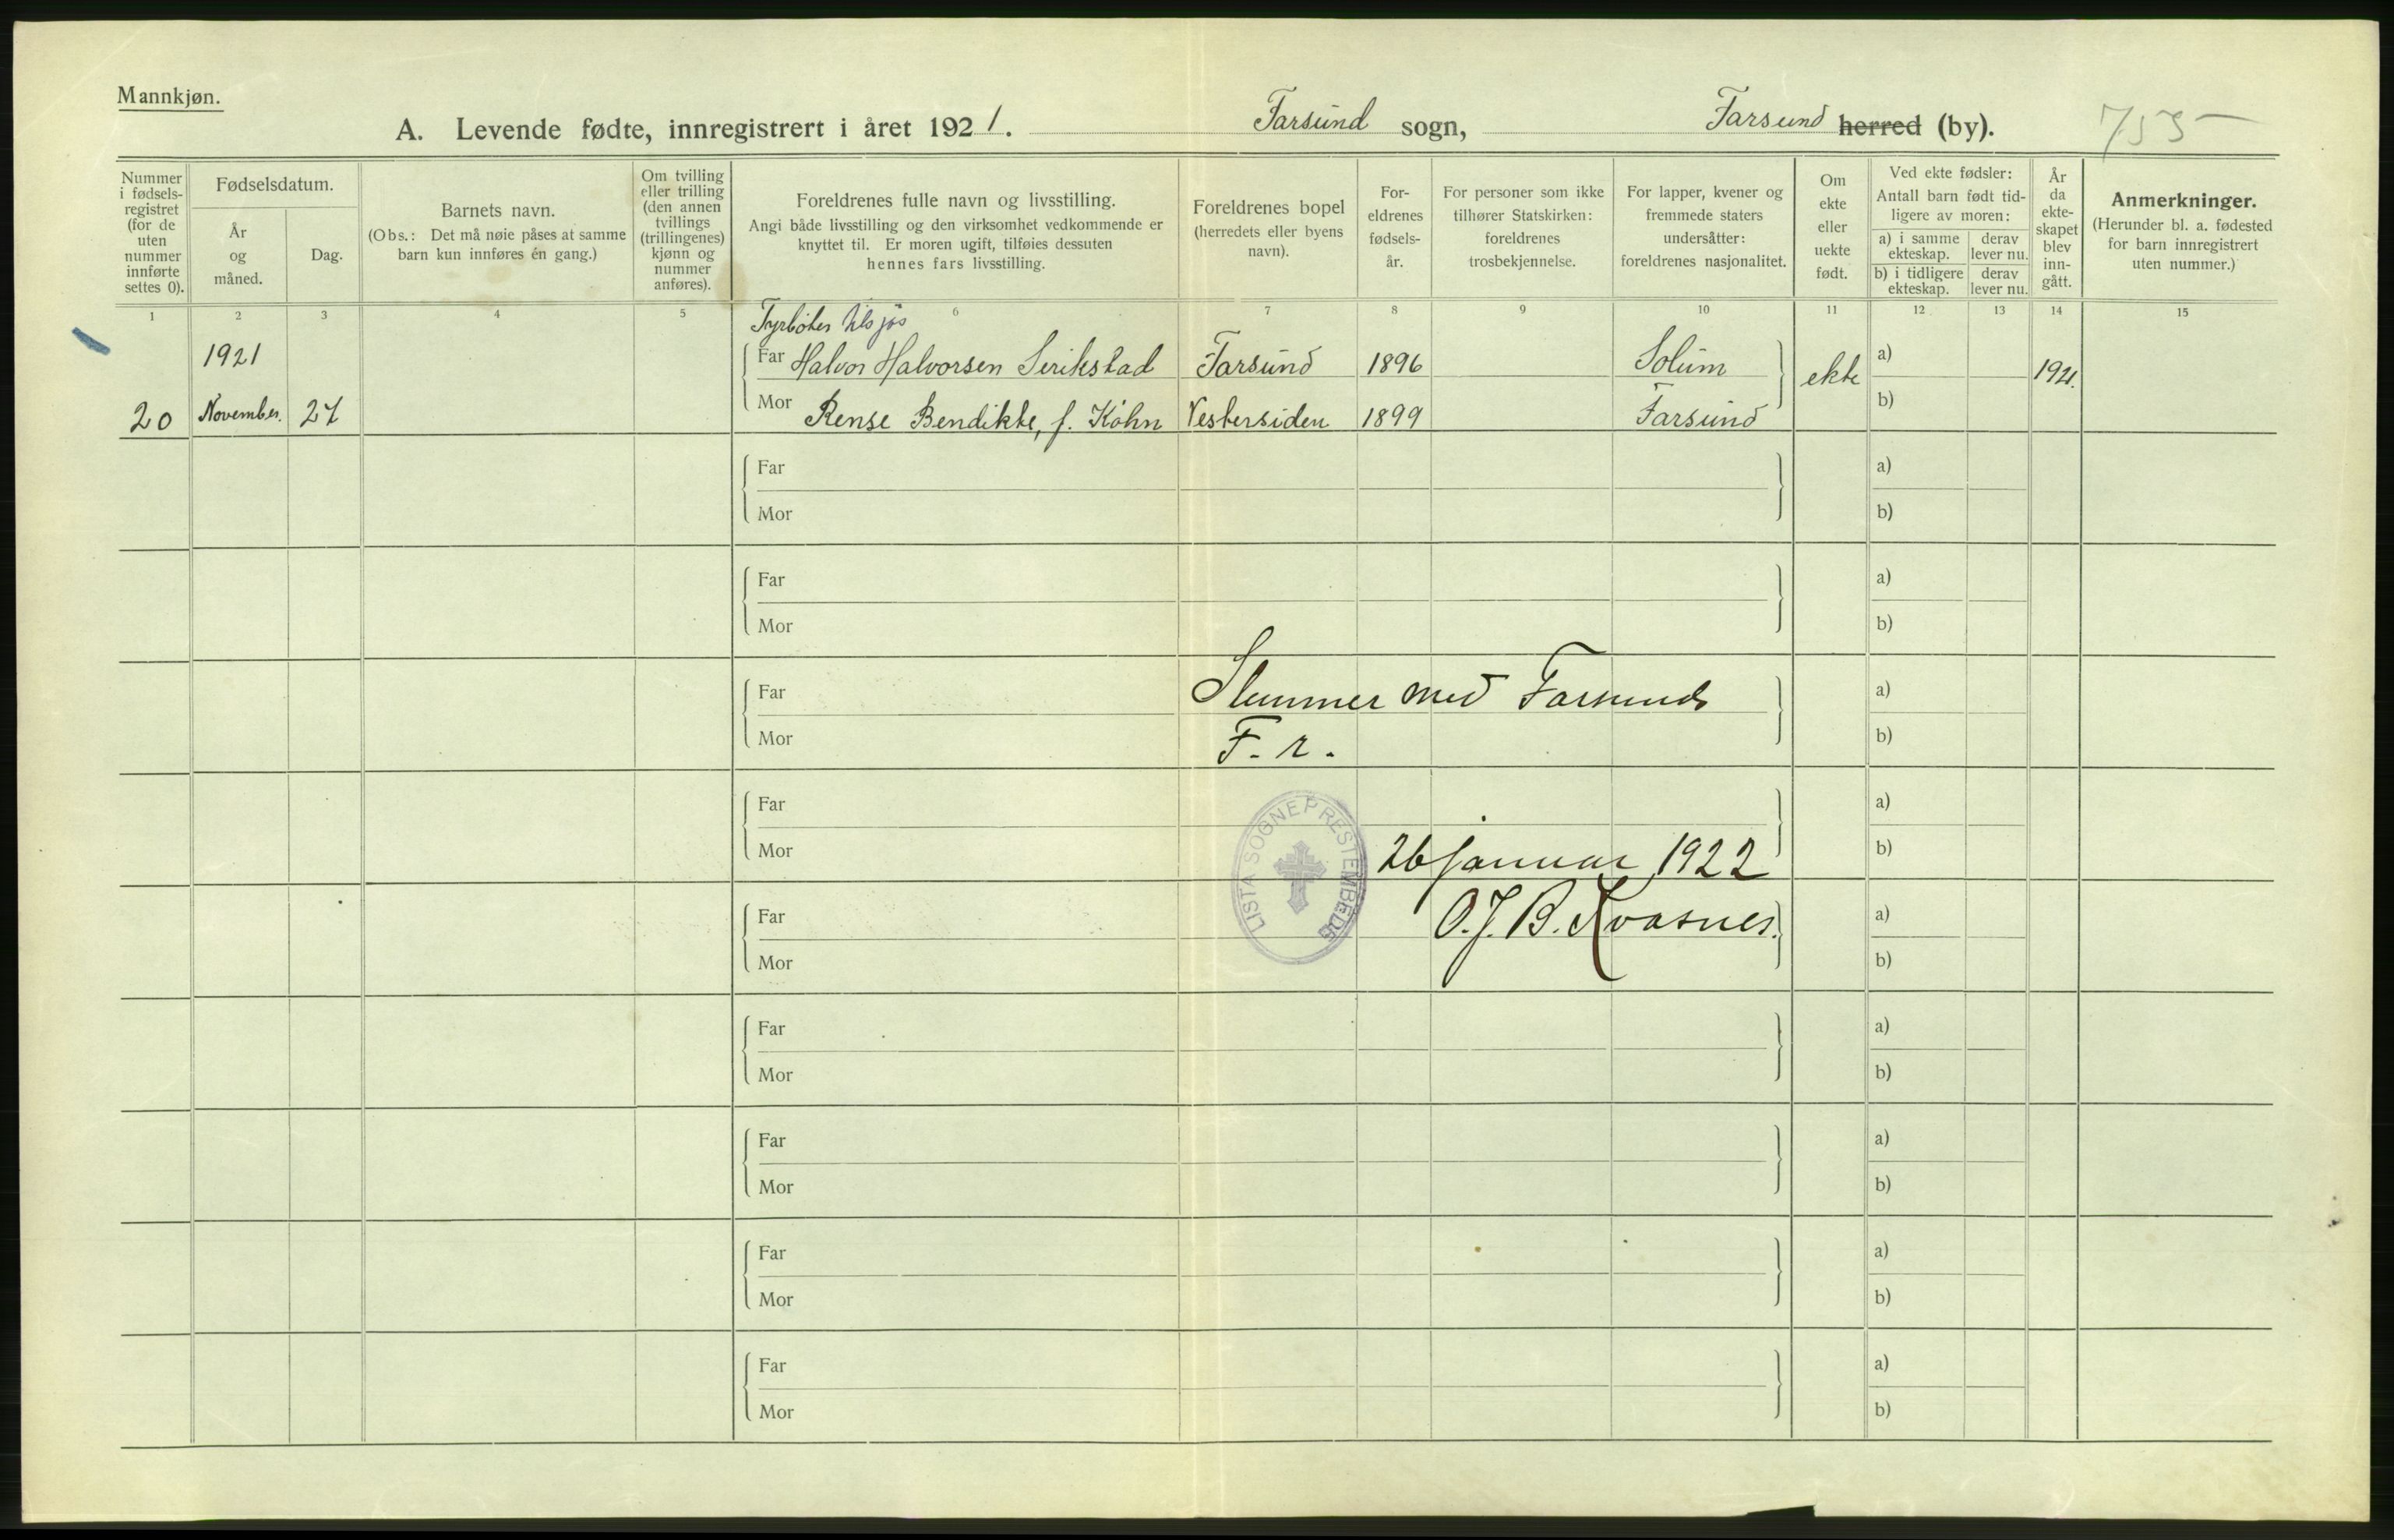 Mannkjøn.
A. Levende fødte, innregistrert i året 1921. Farsund sogn, Farsund herred (by). 755
Nummer i fødsels-registret (for de uten nummer innførte settes 0).
Fødselsdatum.
År og måned.
Dag.
Barnets navn.
(Obs.: Det må nøie påses at samme barn kun innføres én gang.)
Om tvilling eller trilling (den annen tvillings (trillingenes) kjønn og nummer anføres).
Foreldrenes fulle navn og livsstilling.
Angi både livsstilling og den virksomhet vedkommende er knyttet til. Er moren ugift, tilføies dessuten hennes fars livsstilling.
Foreldrenes bopel (herredets eller byens navn).
For-eldrenes fødsels-år.
For personer som ikke tilhører Statskirken: foreldrenes trosbekjennelse.
For lapper, kvener og fremmede staters undersåtter: foreldrenes nasjonalitet.
Om ekte eller uekte født.
Ved ekte fødsler: Antall barn født tid-ligere av moren:
a) i samme ekteskap.
derav lever nu.
b) i tidligere ekteskap.
derav lever nu.
År da ekte-skapet blev inn-gått.
Anmerkninger.
(Herunder bl. a. fødested for barn innregistrert uten nummer.)
1 2 3 4 5 6 7 8 9 10 11 12 13 14 15
Fyrbøter
1921 Far Halvor Halvorsen Farsund 1896 Solum ekte a) 1921.
20 November. 27 Mor Bendikte, f. Vestersiden 1899 Farsund b)
Far a)
Mor b)
Far a)
Mor b)
Far Stemmer med Farsunds a)
Mor F. r. b)
Far a)
Mor 26 januar 1922 b)
LISTA SOGNEPRESTEMBEDE
Far O. J. B. Kvasnes. a)
Mor b)
Far a)
Mor b)
Far a)
Mor b)
Far a)
Mor b)
Far a)
Mor b)